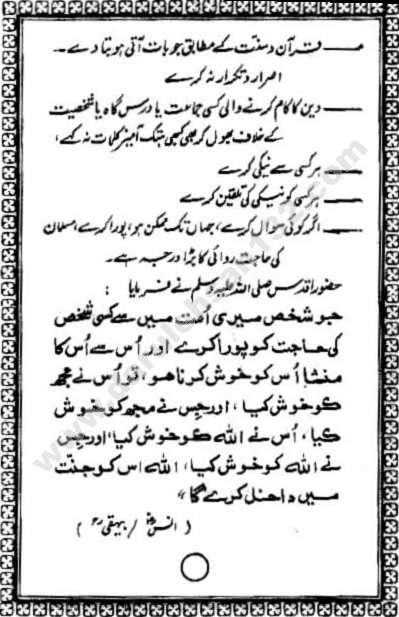 — قرآن و سنت کے مطابق جو بات آتی ہو بتا دے۔
اصرار و تکرار نہ کرے
— دین کا کام کرنے والی کسی جماعت یا درس گاہ یا شخصیت
کے خلاف بھول کر بھی کبھی ہتک آمیز کلمات نہ کہے،
— ہر کسی سے نیکی کرے
— ہر کسی کو نیکی کی تلقین کرے
— اگر کوئی سوال کرے، جہاں تک ممکن ہو، پورا کرے، مسلمان
کی حاجت روائی کا بڑا درجہ ہے۔
حضور اقدس صلی اللہ علیہ وسلم نے فرمایا :
جو شخص میری امت میں سے کسی شخص
کی حاجت کو پورا کرے اور اُس سے اُس کا
منشا اُس کو خوش کرنا ھو، تو اُس نے مجھ
کو خوش کیا، اور جس نے مجھ کو خوش
کیا، اُس نے اللہ کو خوش کیا، اور جس
نے اللہ کو خوش کیا، اللہ اس کو جنت
میں داخل کرے گا"
( انسؓ / بیہقیؒ )